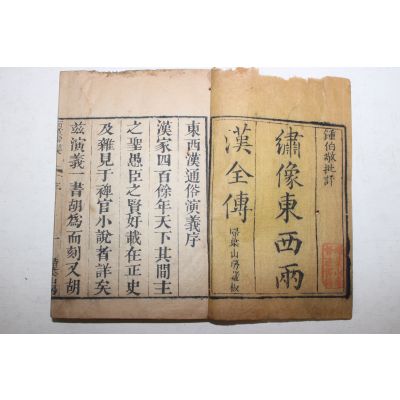 鍾伯敬批評
繡像東西兩
漢全傳
東西漢通俗演義序
漢家四百餘年天下其間主
之聖愚臣之賢好載在正史
及雜見于稗官小說者詳矣
茲演義一書胡爲而刻又胡